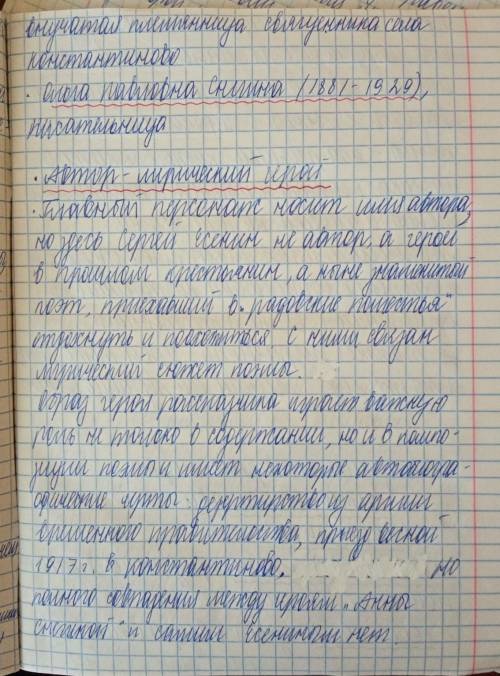 внучатая племянница священника села
константиново
· Ольга Павловна Снегина (1881-1929),
писательница
· Автор-лирический герой
· Главный персонаж носит имя автора,
но здесь Сергей Есенин не автор, а герой
в прошлом крестьянин, а ныне знаменитой
поэт, приехавший в „радовские поместья"
отдохнуть и поохотиться. С ними связан
лирический сюжет поэмы.
Образ героя рассказчика играет важную
роль не только в содержании, но и в компо-
зиции поэмы и имеет некоторые автобиогра-
фические черты: дезертирство из армии
временного правительства, приезд весной
1917 г. в константиново. но
полного совпадения между героям „Анны
снегиной" и самим Есениным нет.